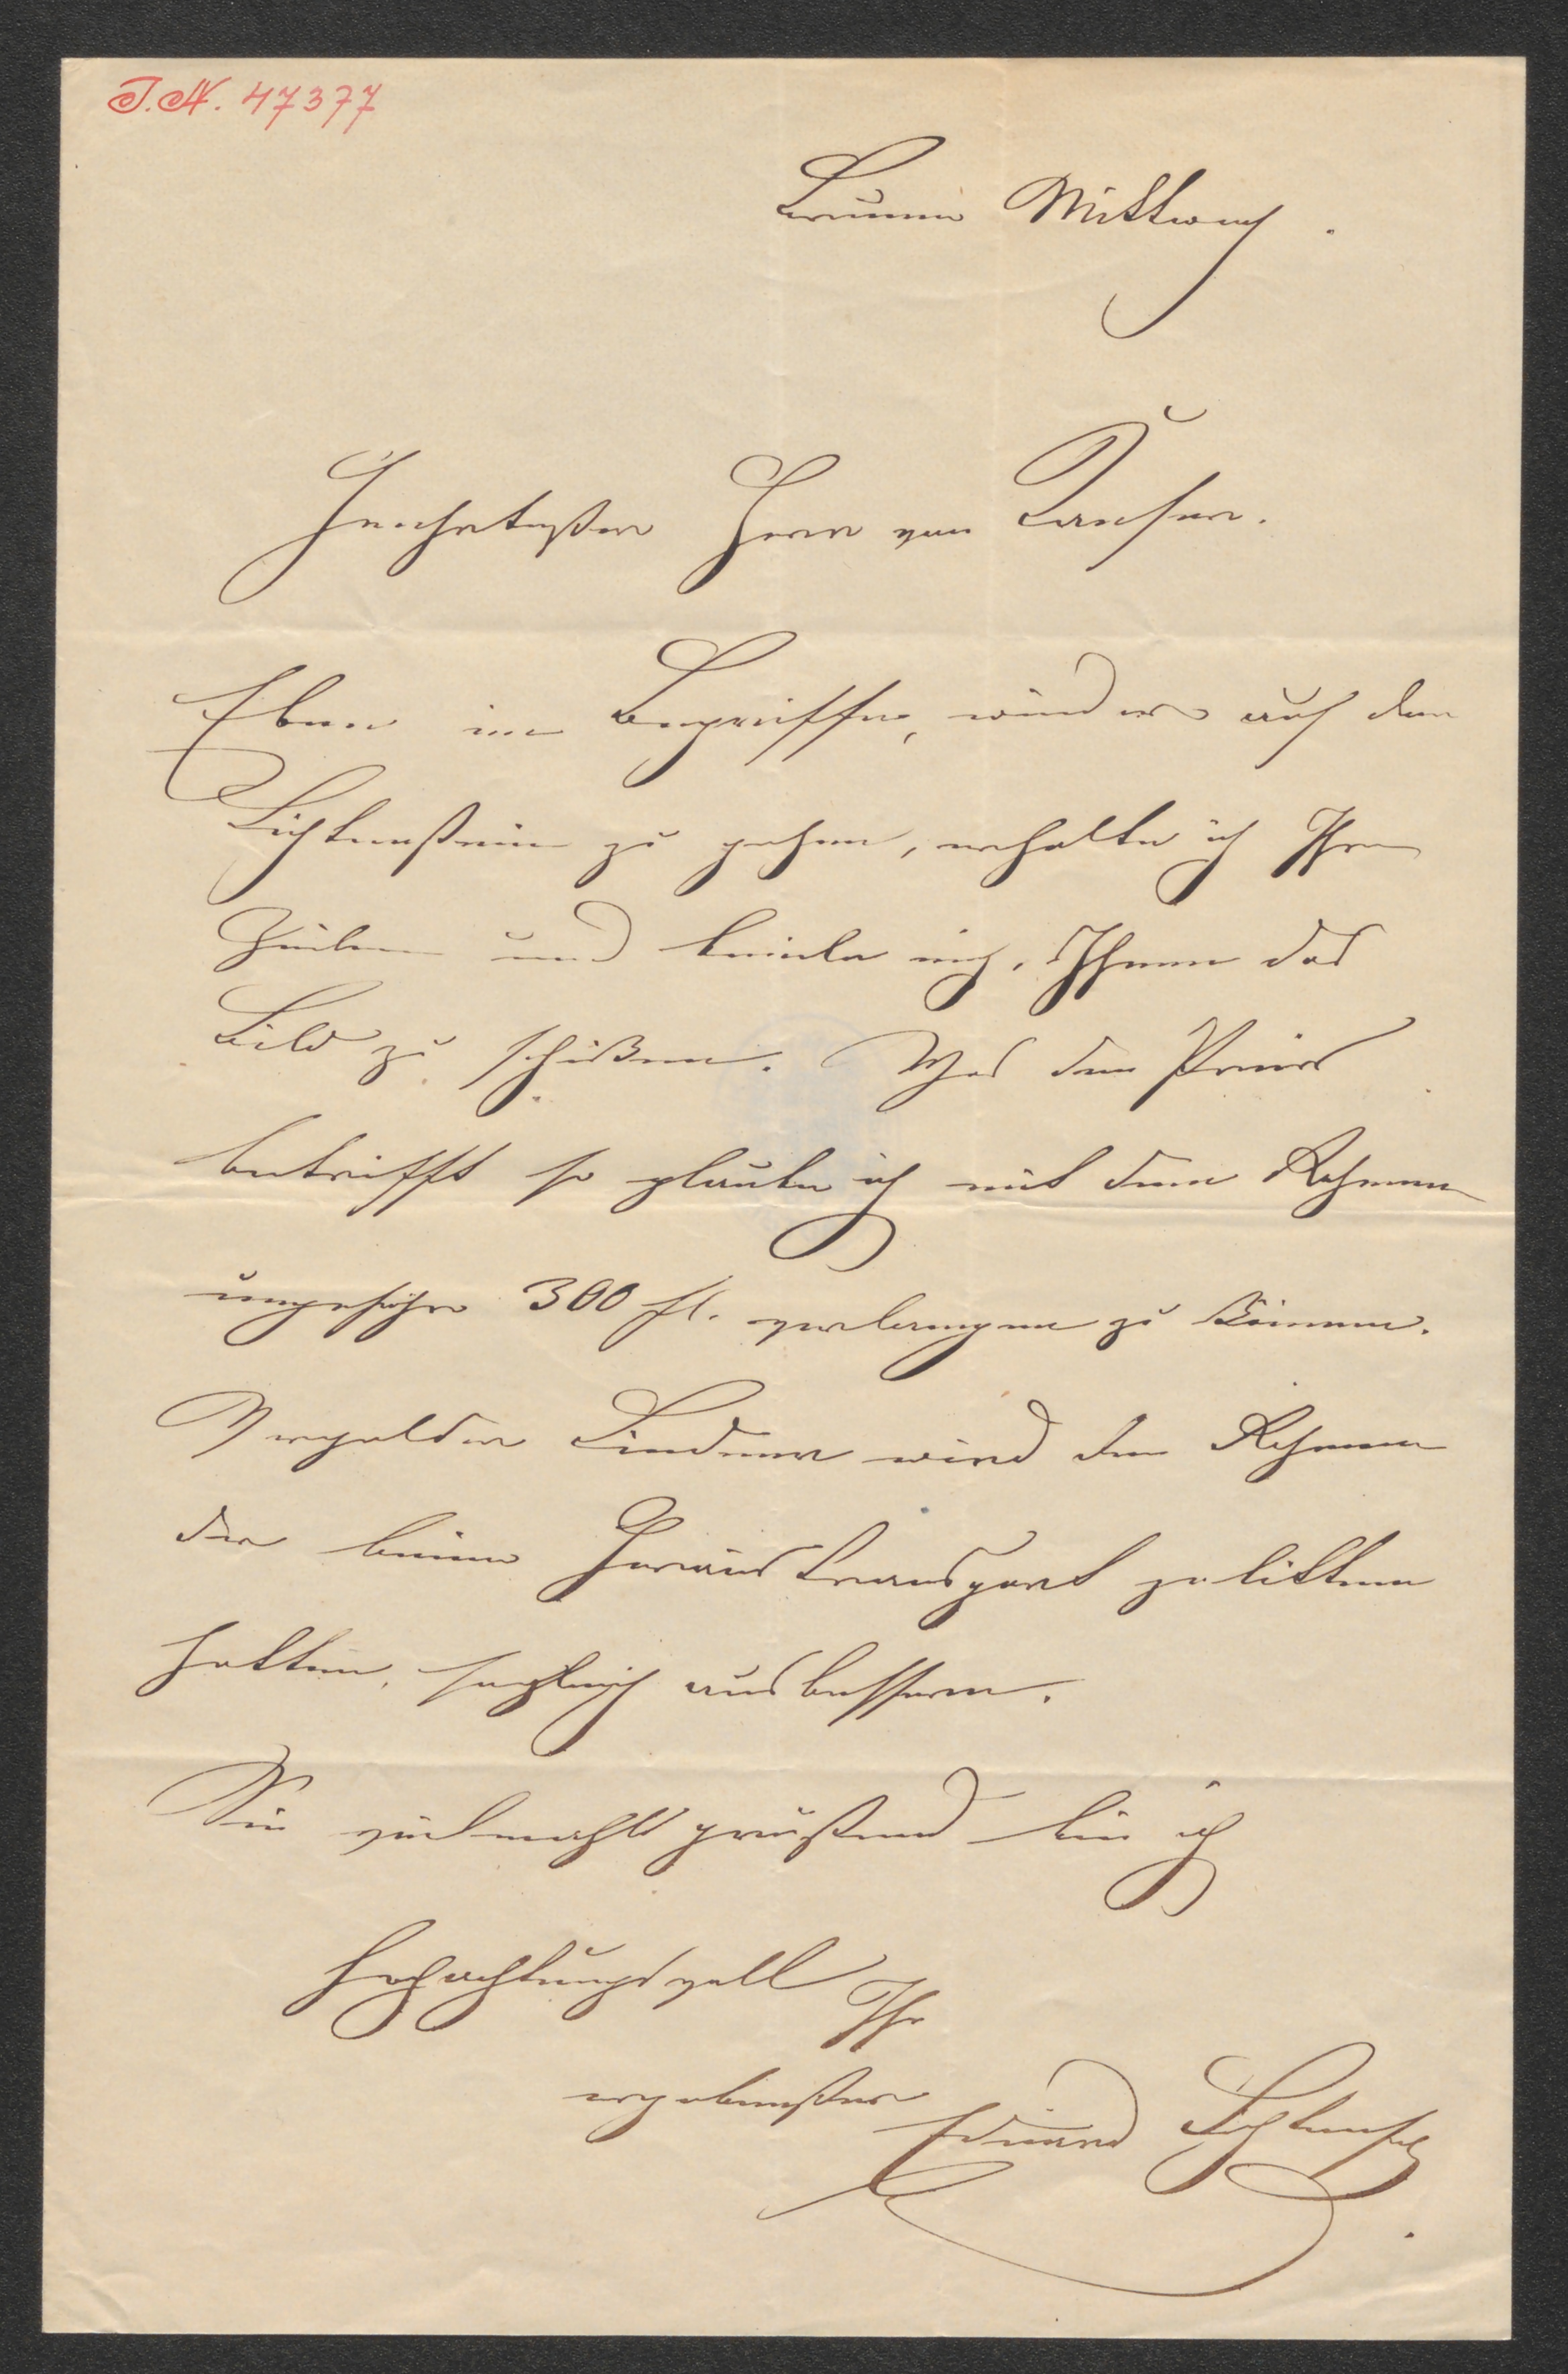 J.N. 47377
Brunn Mittwoch.
Geehrtester Herr von
Eben im Begriffe, wieder auf den
Lichtenstein zu gehen, erhalte ich Ihre
Zeilen und beeile mich, Ihnen das
Bild zu schicken. Was den Preis
betrifft so glaube ich mit dem Rahmen
ungefähr 300 fl. verlangen zu können.
Vergolder Lindner wird den Rahmen
der beim Heraustransport gelitten
hatte, sogleich ausbessern.
Sie vielmahls grüßend bin ich
hochachtungsvoll Ihr
ergebenster Eduard Lichtenfels